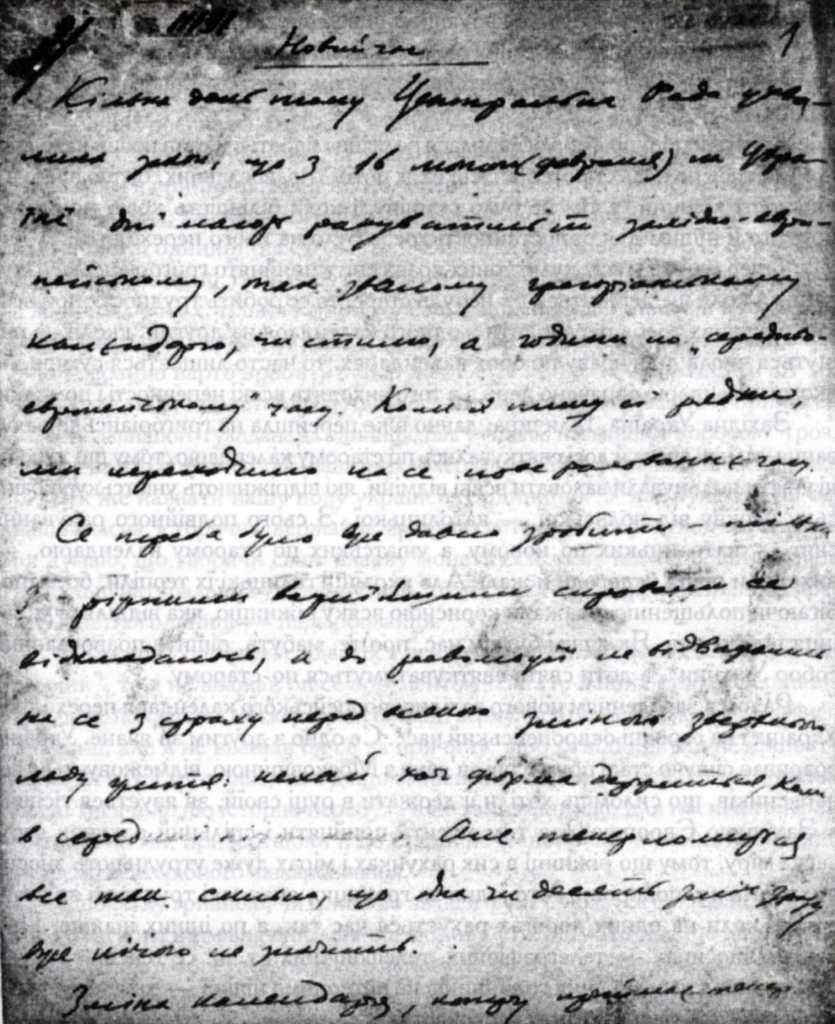 1
Новий час
Кілька день тому Центральна Рада ухва-
лила закон, що з 16 лютого (февраля) на Укра-
їні дні мають рахуватись по західно-евро-
пейському, так званому григоріянському
календарю, чи стилю, а години по „середньо-
европейському" часу. Коли я пишу сі рядки,
ми переходимо на се нове раховання часу.
Се треба було вже давно зробити – тільки
з ріжними важнійшими справами се
відкладалось, а до революції не відважались
на се з страху перед всякою зміною зверхнього
ладу життя: нехай хоч форма держиться, коли
в середині Але тепер ломиться
все так сильно, що одна чи десять змін зразу
вже нічого не значить.
Зміна календаря, котру приймає тепер